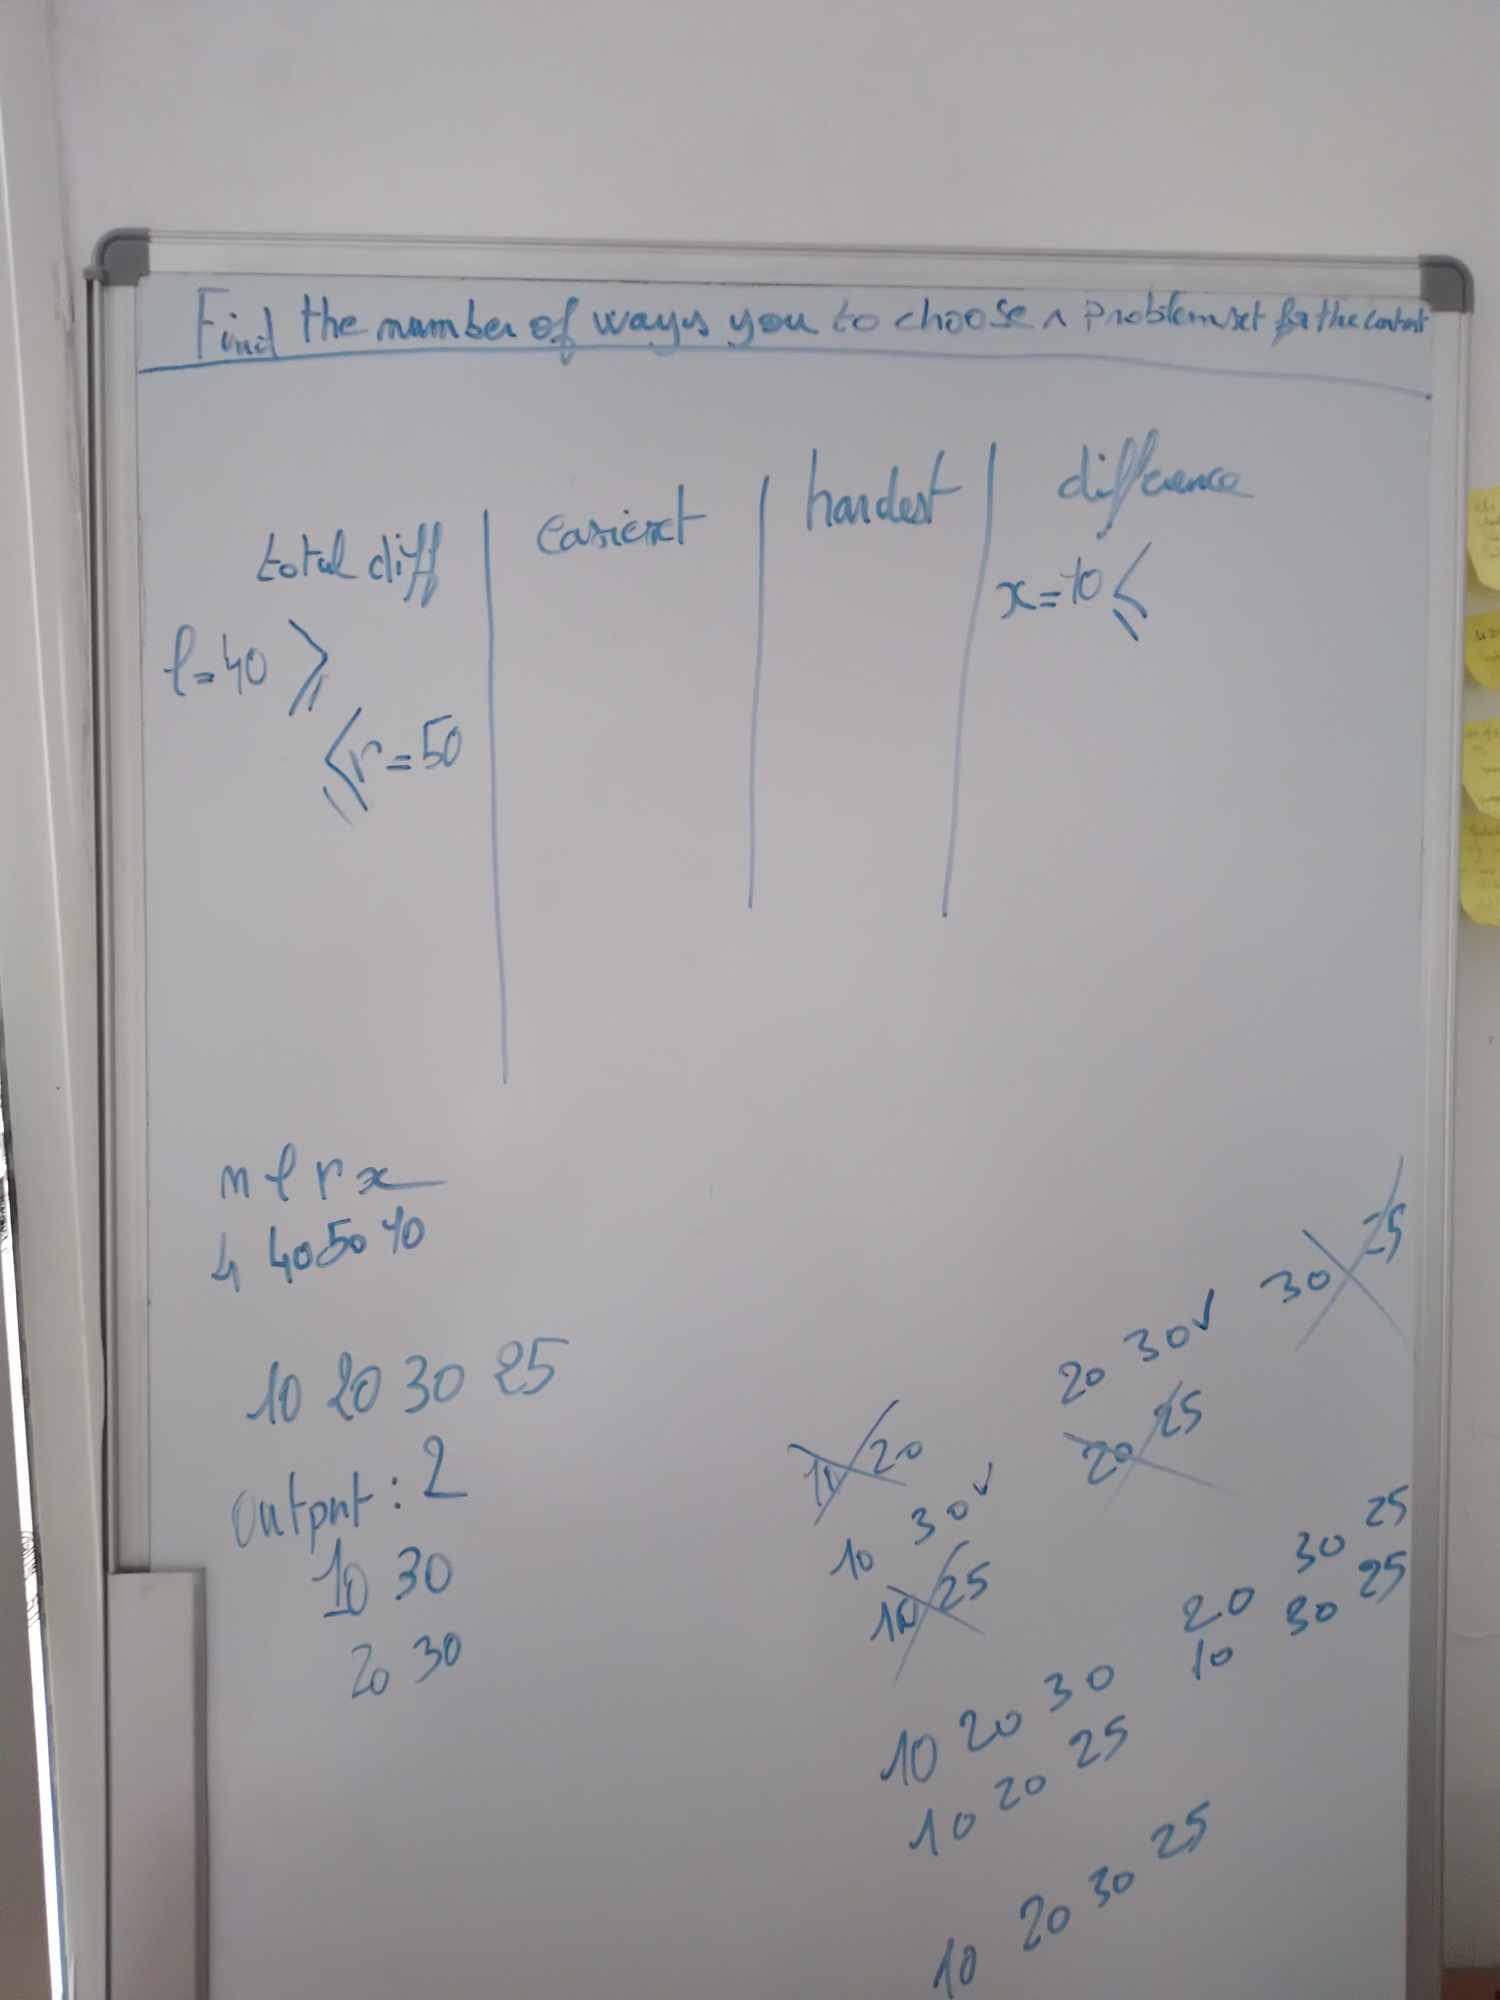 Find the number of ways you to choose a problemset for the contest
total diff easiest hardest difference
l=40 ≥
≤ r=50
x=10 ≤
n l r x
4 40 50 10
10 20 30 25
Output: 2
10 30
20 30
10 20
10 30 ✓
10 25
20 30 ✓
20 25
30 25
10 20 30
10 20 25
20 30 25
10 30 25
10 20 30 25